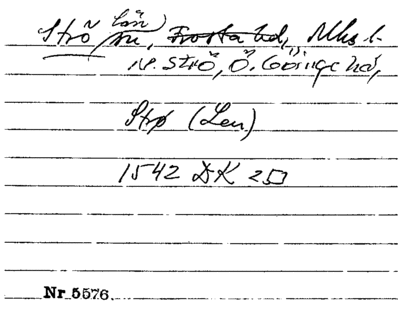 Strö län
sn, Frosta hd, Mhs l.
N. Strö, Ö. Göinge hd,
Strø (Len)
1542 DK 25
Nr 5576.